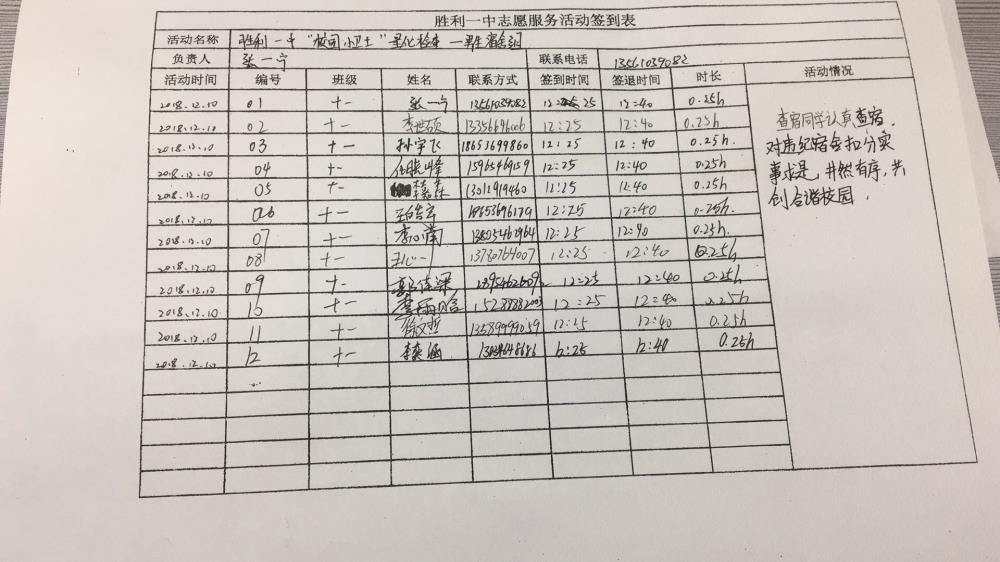 胜利一中志愿服务活动签到表
活动名称 胜利一中"校园小卫士"量化检查—男生宿舍
负责人 张一宁 联系电话 13561039082
活动时间 编号 班级 姓名 联系方式 签到时间 签退时间 时长 活动情况
2018.12.10 01 十一 张一宁 13561039082 12:25 12:40 0.25h
2018.12.10 02 十一 李世硕 13356696006 12:25 12:40 0.25h
2018.12.10 03 十一 孙宇飞 18653699860 12:25 12:40 0.25h
2018.12.10 04 十一 15965469159 12:25 12:40 0.25h
2018.12.10 05 十一 13012919460 12:25 12:40 0.25h
2018.12.10 06 十一 18653696179 12:25 12:40 0.25h
2018.12.10 07 十一 12:25 12:40 0.25h
2018.12.10 08 十一 13780764007 12:25 12:40 0.25h
2018.12.10 09 十一 12:25 12:40 0.25h
2018.12.10 10 十一 12:25 12:40 0.25h
2018.12.10 11 十一 徐文哲 13589999059 12:25 12:40 0.25h
2018.12.10 12 十一 李奕涵 12:25 12:40 0.25h
...
查宿同学认真查宿,
对违纪宿舍扣分实
事求是,井然有序,共
创合谐校园.